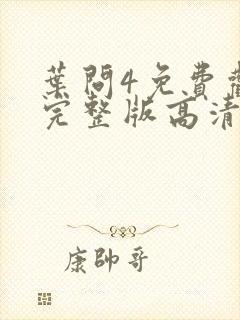 葉問4免費
完整版高清
康帥哥